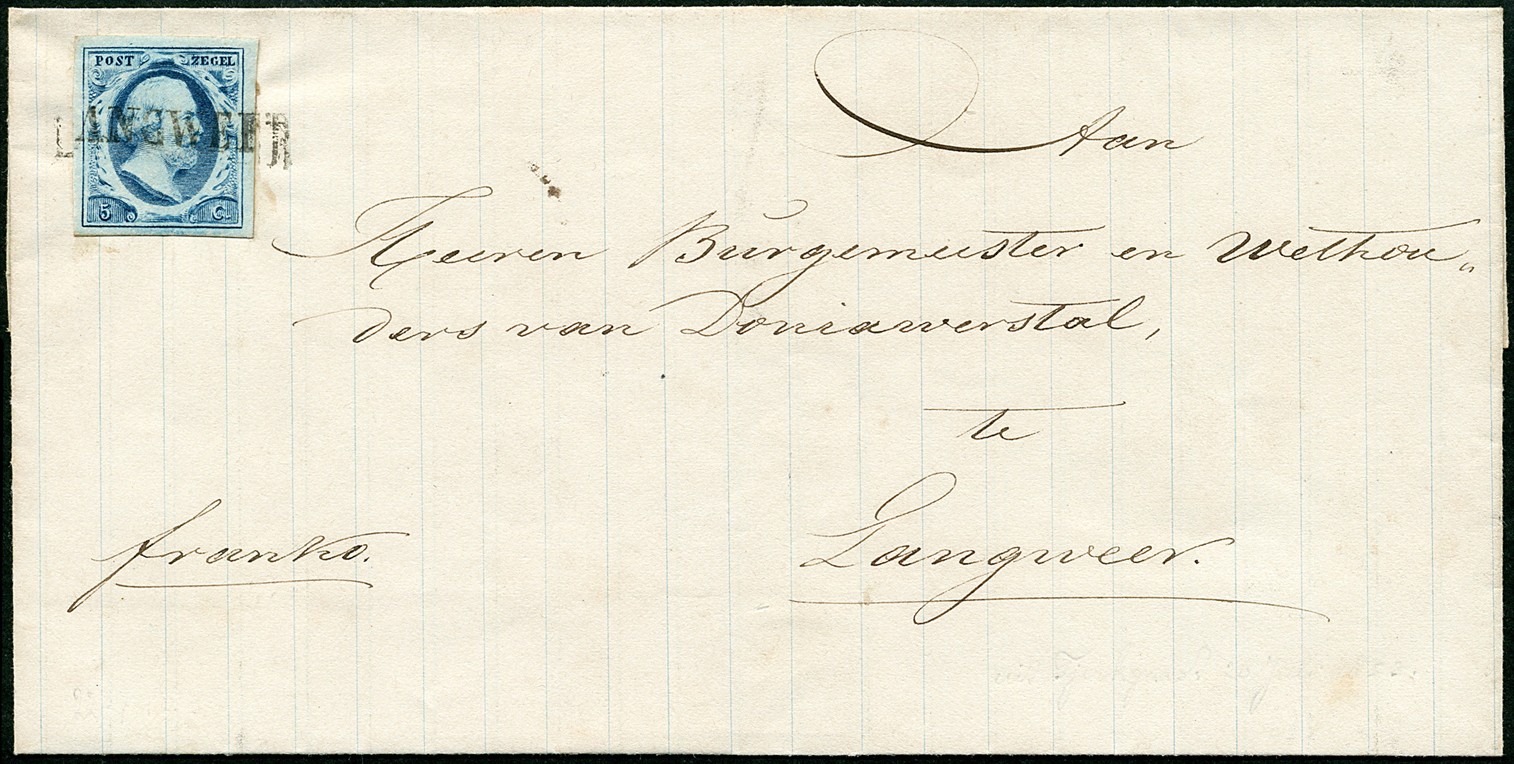 POST ZEGEL
LANGWEER
5 Ct
Aan
Heeren Burgemeester en Wethou„
ders van Doniawerstal,
te
Langweer.
franko.